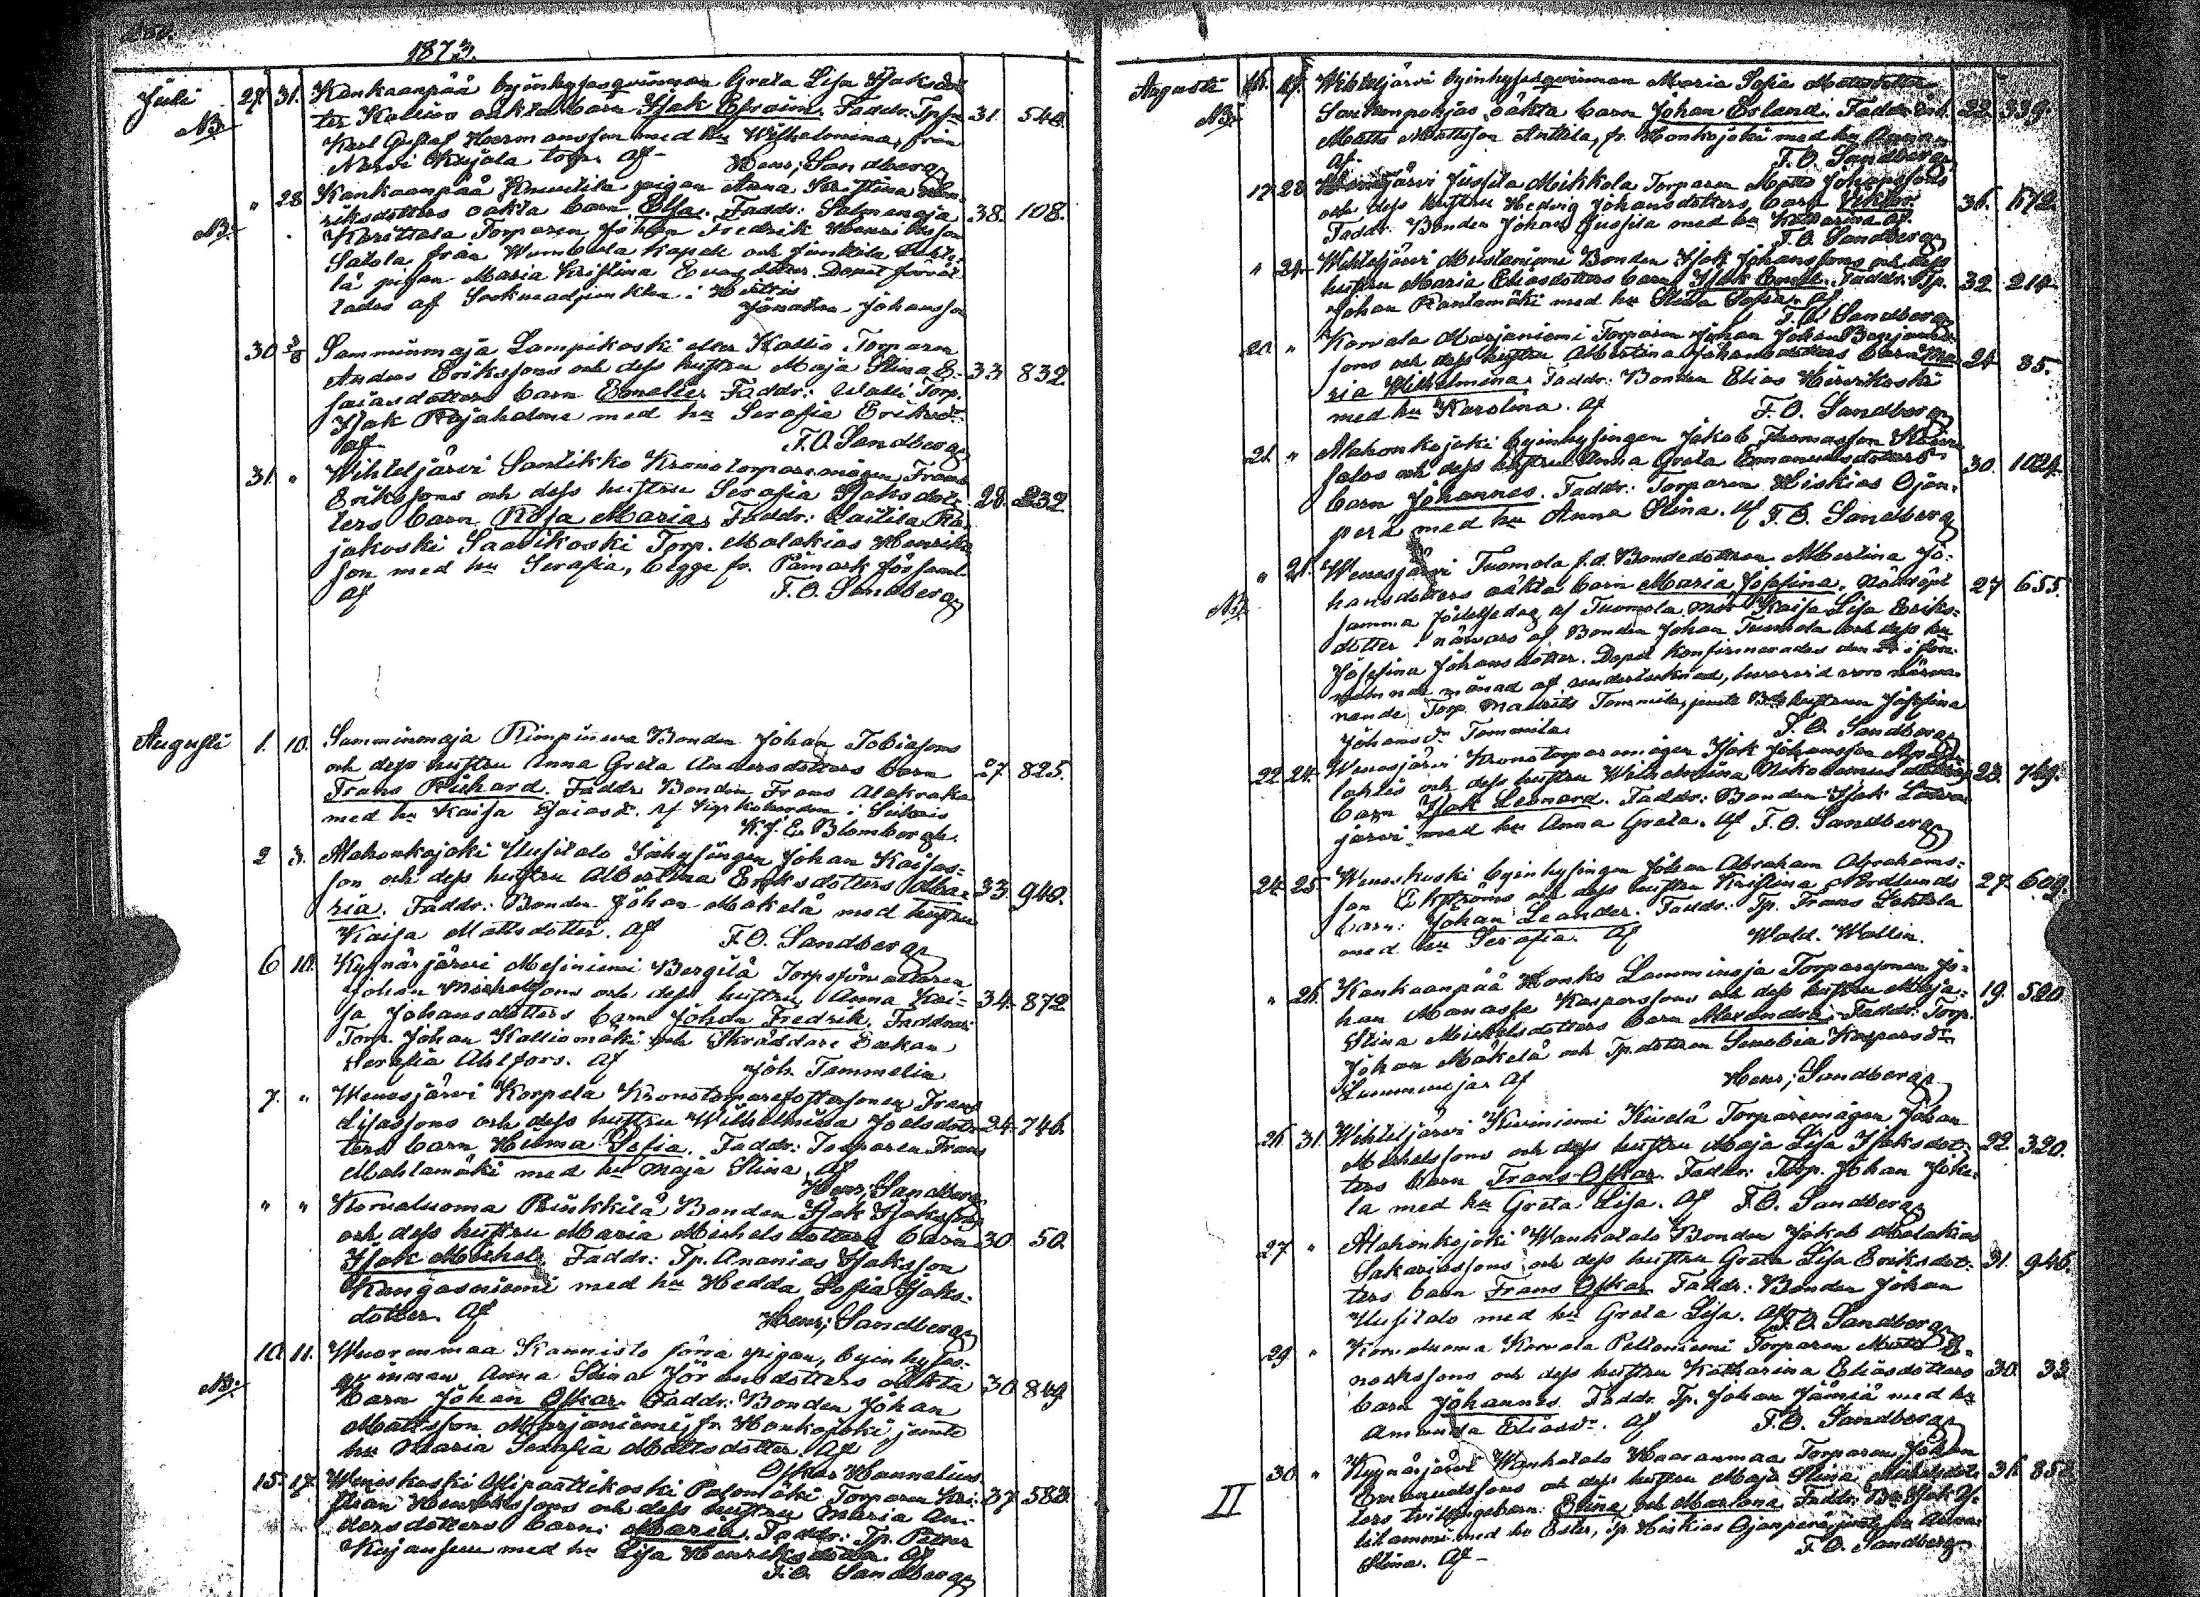 1873.
Juli 29. 31. Kankaanpää byinhysesqvinnan Greta Lisa Isaksdot-
NB. ters Kallios oäkta barn Isak Efraim. Faddr: Tpsn 31. 540.
Karl Gustaf Hermansson med hu Wilhelmina, från
Närvi Kujala torp. af Henr; Sandberg
" 28 Kankaanpää pigan Anna Kristina Hen-
NB. riksdotters oäkta barn Elsa. Faddr: Salmenoja 38. 108.
Torparen Johan Fredrik Henriksson
Satola från kapell och
lä pigan Maria Kristina dotter. Dopet förrät-
tades af Sockneadjunkten i Hvittis
Jonathan Johansson
30 3/8 Samminmaja Lampikoski eller Kallio Torparen
Anders Erikssons och dess hustru Maja Stina E- 33. 832.
saiasdotters barn Emelie. Faddr: Torp.
Isak Rajaholme med hu Serafia Eriksdr
af F. O. Sandberg
31. " Wihteljärvi Santikko Kronotorparemågen Frans
Erikssons och dess hustru Serafia Isaksdot- 28. 232.
ters barn Rosa Maria. Faddr: Laitila Ra-
jakoski Saarikoski Torp. Malakias Henriks-
son med hu Serafia, begge fr. Påmark församl.
af F. O. Sandberg
Augusti 1. 10. Samminmaja Rimpineva Bonden Johan Tobiassons
och dess hustru Anna Greta Andersdotters barn 27. 825.
Frans Rikhard. Faddr Bonden Frans Alakraka
med hu Kaisa Esaiasdr. af Vicepastorn i Siikais
K. J. E. Blomborgh.
2 3. Alahonkajoki Uusitalo Inhysingen Johan Kaijas-
son och dess hustru Albertina Eriksdotters Ma- 33. 940.
ria. Faddr: Bonden Johan Mäkelä med hustru
Kaisa Mattsdotter. af F. O. Sandberg
6 10. Kyynärjärvi Mesiniemi Bergilä Torpsförvaltaren
Johan Michelssons och dess hustru Anna Kai- 34. 872.
sa Johansdotters barn Johan Fredrik. Faddrar
Torp. Johan Kalliomäki och Skräddare Enkan
Serafia Ahlfors. af Joh. Tammelin
7. " Wenesjärvi Korpela Kronotorparefostersonen Frans
Lisassons och dess hustru Wilhelmina Joelsdot- 24. 746.
ters barn Hilma Sofia. Faddr: Torparen Frans
Mahlamäki med hu Maja Stina. af
Henr; Sandberg
" " Korvaluoma Peikkilä Bonden Isak Isakssons
och dess hustru Maria Michelsdotters barn 30. 50.
Isak Michel. Faddr: Tp. Ananias Isaksson
Kangasniemi med hu Hedda Sofia Isaks-
dotter. af Henr; Sandberg
10. 11. Wuorenmaa Kannisto förra pigan, byinhyses-
NB. qvinnan Anna Stina Göransdotters oäkta 30. 849.
barn Johan Oskar. Faddr: Bonden Johan
Mattsson Marjaniemi fr. Honkajoki jemte
hu Maria Serafia Mattsdotter. af
Oskar Hannelius.
15. 17. Weneskoski Ylipaattikoski Palomäki Torparen Kri-
stian Henrikssons och dess hustru Maria An- 37. 583.
dersdotters barn: Maria. Faddr: Tp. Petter
Kujansuu med hu Lisa Henriksdotter. af
F. O. Sandberg
Augusti 16. 17. Wihteljärvi byinhysesqvinnan Maria Sofia Mattsdotter
NB. oäkta barn Johan Erland. Faddr: 22. 339.
Matts Mattsson Anttila, fr. Honkajoki med hu Anna
af F. O. Sandberg
17. 23. Jussila Mikkola Torparen Matts Johanssons
och dess hustru Hedvig Johansdotters barn Viktor. 36. 672.
Faddr: Bonden Johan Jussila med hu Katarina. af
F. O. Sandberg
" 24. Wihteljärvi Mustaniemi Bonden Isak Johanssons och dess
hustru Maria Eliasdotters barn Isak Emil. Faddr: Tp. 32. 214.
Johan Rantamäki med hu Stina Sofia. af
F. O. Sandberg
20. " Karvala Marjaniemi Torparen Johan Johan Benjamins-
sons och dess hustru Albertina Johansdotters barn Ma- 24 35.
ria Wilhelmina. Faddr: Bonden Elias Hietikoski
med hu Karolina. af F. O. Sandberg
21. " Alahonkajoki byinhysingen Jakob Thomasson
salos och dess hustru Anna Greta Emanuelsdotters 30. 1024.
barn Johannes. Faddr: Torparen Hiskias Ojan-
perä med hu Anna Stina. af F. O. Sandberg
" 21. Wenesjärvi Tuomola f.d. Bondedottren Albertina Jo-
NB. hansdotters oäkta barn Maria Josefina. Nöddöpt 27 655.
samma födelsedag af Tuomola mor Kaisa Lisa Eriks-
dotter i närvaro af Bonden Johan Tuomola och dess hu
Josefina Johansdotter. Dopet konfirmerades den 24 i före-
nämnde månad af undertecknad, hvarvid voro närva-
rande Torp. Matts Tommila, jemte Bdehustrun Josefina
Johansdr Tommila F. O. Sandberg
22 24. Wenesjärvi Kronotorparemågen Isak Johansson
lahtis och dess hustru Wilhelmina Nikodemusdotters 23. 769.
barn Isak Leonard. Faddr: Bonden Isak Latva-
järvi med hu Anna Greta. af F. O. Sandberg
24. 25 Weneskoski byinhysingen Johan Abraham Abrahams-
son Ekströms och dess hustru Kristina Nordlunds 27. 609.
barn: Johan Leander. Faddr: Tp. Frans Lehtola
med hu Serafia. af Wald. Wallin.
" 26. Kankaanpää Honko Lamminoja Torparsonen Jo-
han Manasse Kasperssons och dess hustru Maja 19. 520.
Stina Michelsdotters barn Alexandra. Faddr: Torp.
Johan Mäkelä och Tp.dottren Senobia Kaspersdr
Lamminoja. af Henr; Sandberg
26 31. Wihteljärvi Kiviniemi Kivelä Torparemågen Johan
Michelssons och dess hustru Maja Lisa Isaksdot- 22. 320.
ters barn Frans Oskar. Faddr: Torp. Johan Joke-
la med hu Greta Lisa. af F. O. Sandberg
27 " Alahonkajoki Wanhatalo Bonden Jakob Malakias
Sakariassons och dess hustru Greta Lisa Eriksdot- 31. 946.
ters barn Frans Oskar. Faddr: Bonden Johan
Uusitalo med hu Greta Lisa. af F. O. Sandberg
29 " Korvaluoma Karvala Peltoniemi Torparen Matts E-
nokssons och dess hustru Katharina Eliasdotters 30. 33.
barn Johannes. Faddr. Tp. Johan Jämiä med hu
Amanda Eliasdr. af F. O. Sandberg
30 " Kyynärjärvi Wanhatalo Haaranmaa Torparen Johan
II Emanuelssons och dess hustru Maja Stina Michelsdot- 36 85
ters tvillingebarn: Elina och Mariana. Faddr: Bn Isak Yli-
hammi med hu Ester, Tp. Hiskias Ojanperä jemte hu Anna
Stina. af F. O. Sandberg